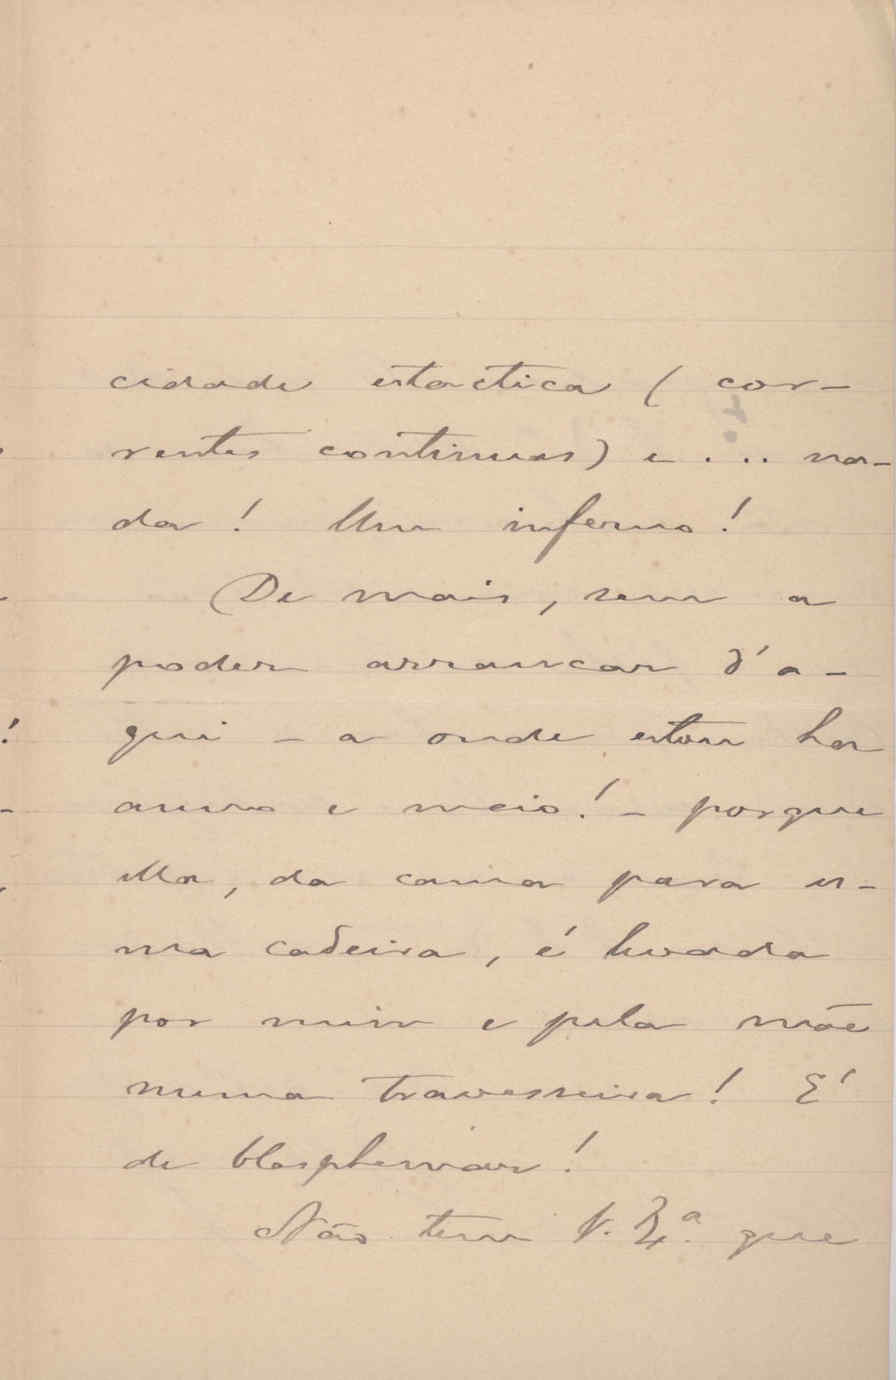 cidade estactica (cor-
rentes continuas) e ... na-
da! Um inferno!
De mais, sem a
poder arrancar d'a-
qui - a onde estou ha
anno e meio! - porque
ella, da cama para u-
ma cadeira, é levada
por mim e pela mãe
numa travesseira! E'
de blasphemar!
Não tem V. Ex.ª que